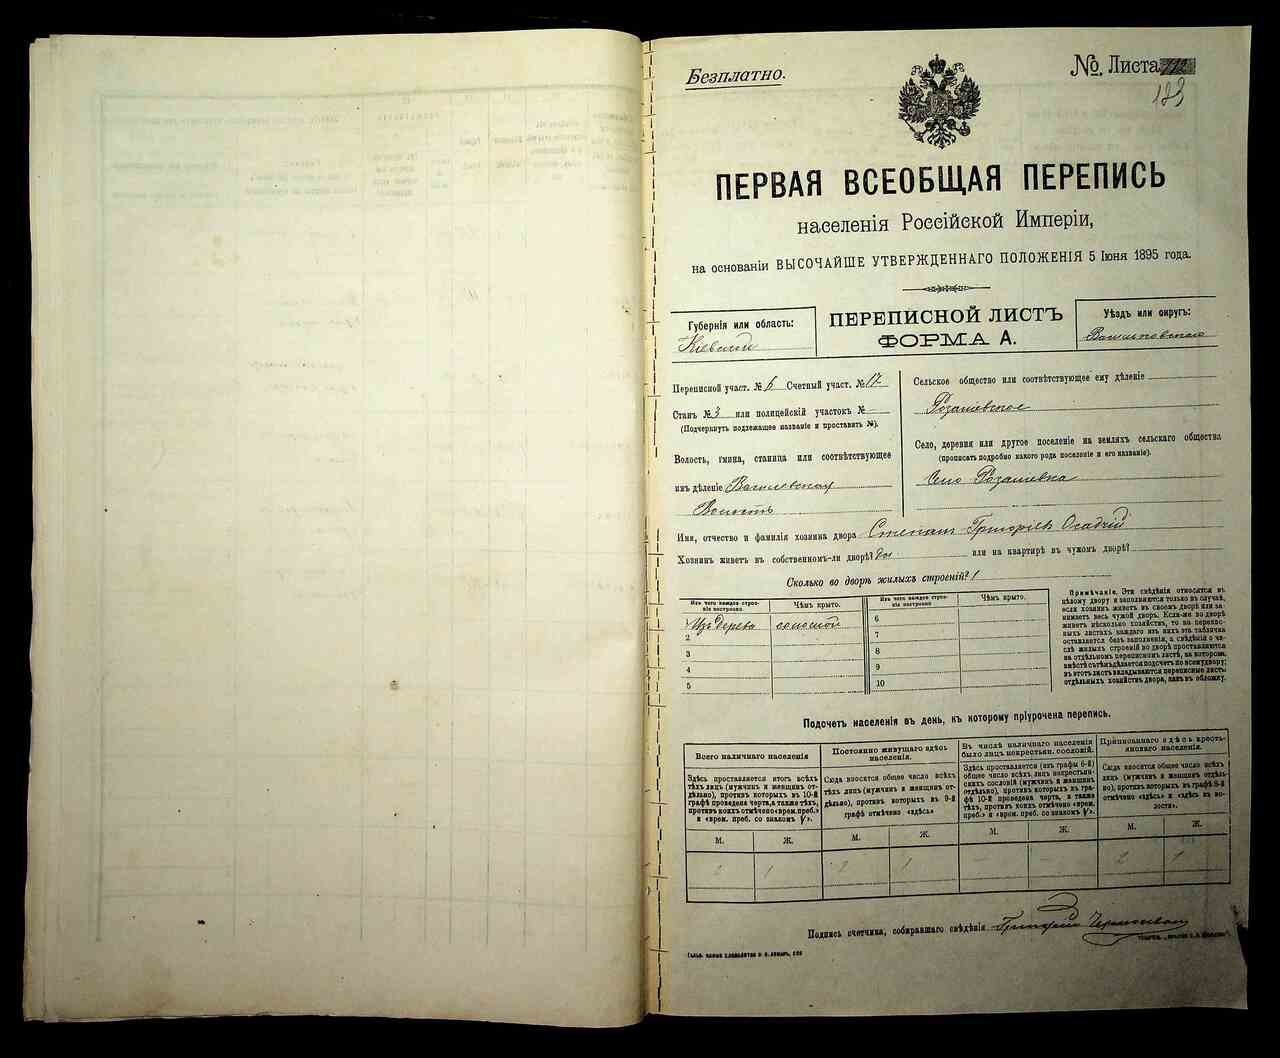 Безплатно.
№. Листа 112
123
ПЕРВАЯ ВСЕОБЩАЯ ПЕРЕПИСЬ
населенія Россійской Имперіи,
на основаніи ВЫСОЧАЙШЕ УТВЕРЖДЕННАГО ПОЛОЖЕНІЯ 5 Іюня 1895 года.
Губернія или область:
Кіевская
ПЕРЕПИСНОЙ ЛИСТЪ
ФОРМА А.
Уѣздъ или округъ:
Переписной участ. № 6 Счетный участ. № 17
Станъ № 3 или полицейскій участокъ № -
(Подчеркнуть подлежащее названіе и проставить №).
Волость, гмина, станица или соотвѣтствующее
имъ дѣленіе
Волость
Сельское общество или соотвѣтствующее ему дѣленіе
Розалевское
Село, деревня или другое поселеніе на земляхъ сельскаго общества
(прописать подробно какого рода поселеніе и его названіе).
Село Розалевка
Имя, отчество и фамилія хозяина двора Степанъ Григорьев Осадчій
Хозяинъ живетъ въ собственномъ-ли дворѣ? да или на квартирѣ въ чужомъ дворѣ?
Сколько во дворѣ жилыхъ строеній? 1
Изъ чего каждое строеніе построено
Чѣмъ крыто.
Изъ чего каждое строеніе построено
Чѣмъ крыто.
Изъ дерева соломой
2
3
4
5
6
7
8
9
10
Примѣчаніе. Эти свѣдѣнія относятся къ
цѣлому двору и заполняются только въ случаѣ,
если хозяинъ живетъ въ своемъ дворѣ или занимаетъ
весь чужой дворъ. Если-же во дворѣ
живетъ нѣсколько хозяйствъ, то на переписныхъ
листахъ каждаго изъ нихъ эта табличка
оставляется безъ заполненія, а свѣдѣнія о числѣ
жилыхъ строеній во дворѣ проставляются
на отдѣльномъ переписномъ листѣ, на которомъ
вмѣстѣ съ тѣмъ дѣлается подсчетъ по всему двору;
въ этотъ листъ вкладываются переписные листы
отдѣльныхъ хозяйствъ двора, какъ въ обложку.
Подсчетъ населенія въ день, къ которому пріурочена перепись.
Всего наличнаго населенія
Здѣсь проставляется итогъ всѣхъ
тѣхъ лицъ (мужчинъ и женщинъ отдѣльно),
противъ которыхъ въ 10-й
графѣ проведена черта, а также тѣхъ,
противъ коихъ отмѣчено «врем. преб.»
и «врем. преб. со знакомъ V».
Постоянно живущаго здѣсь
населенія.
Сюда вносятся общее число всѣхъ
тѣхъ лицъ (мужчинъ и женщинъ отдѣльно),
противъ которыхъ въ 9-й
графѣ отмѣчено «здѣсь»
Въ числѣ наличнаго населенія
было лицъ некрестьян. сословій.
Здѣсь проставляется (изъ графы 6-й)
общее число всѣхъ лицъ некрестьянскихъ
сословій (мужчинъ и женщинъ
отдѣльно), противъ которыхъ въ графѣ
10-й проведена черта, а также
тѣхъ, противъ коихъ отмѣчено «врем.
преб.» и «врем. преб. со знакомъ V».
Приписаннаго здѣсь крестьянскаго
населенія.
Сюда вносятся общее число всѣхъ
лицъ (мужчинъ и женщинъ отдѣльно),
противъ которыхъ въ графѣ 8-й
отмѣчено «здѣсь» и «здѣсь въ волости».
М. Ж. М. Ж. М. Ж. М. Ж.
2 1 2 1 - - 2 1
Подпись счетчика, собиравшаго свѣдѣнія Григорій